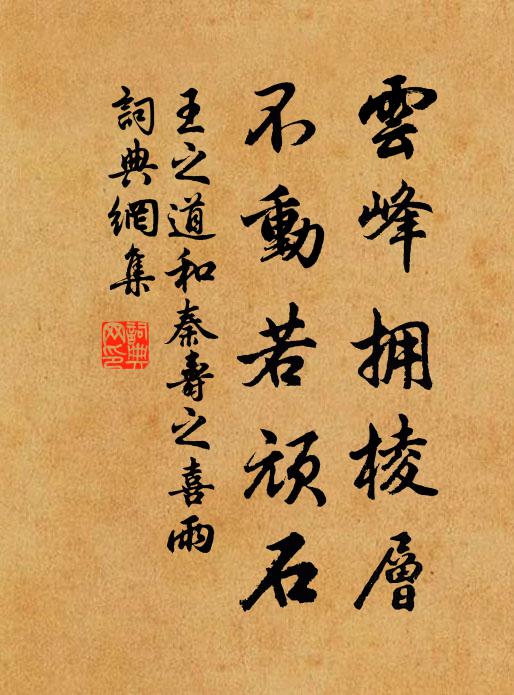 雲峰拥棱層
不動若頑石
王之道和秦壽之喜雨
詞典網集
詞典网印